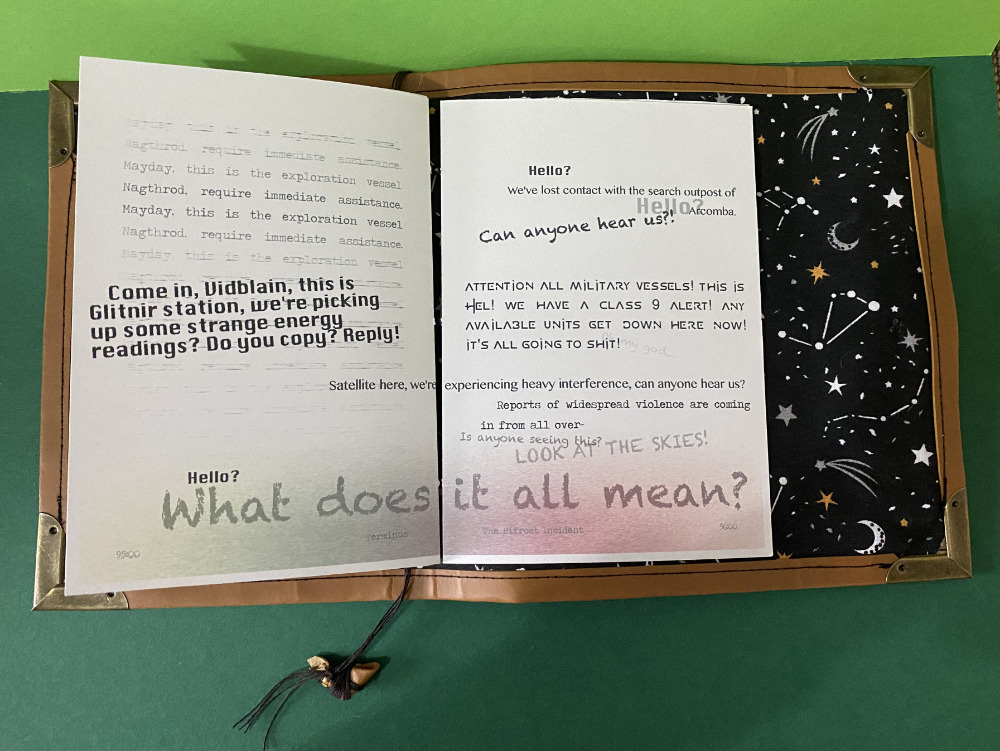 Nagthrod, require immediate assistance.
Mayday, this is the exploration vessel
Nagthrod, require immediate assistance.
Mayday, this is the exploration vessel
Nagthrod, require immediate assistance.
Mayday, this is the exploration vessel
Come in, Vidblain, this is
Glitnir station, we're picking
up some strange energy
readings? Do you copy? Reply!
Hello?
We've lost contact with the search outpost of
Hello?
Afcomba.
Can anyone hear us?!
ATTENTION ALL MILITARY VESSELS! THIS IS
HEL! WE HAVE A CLASS 9 ALERT! ANY
AVAILABLE UNITS GET DOWN HERE NOW!
IT'S ALL GOING TO SHIT!
Oh my god
Satellite here, we're experiencing heavy interference, can anyone hear us?
Reports of widespread violence are coming
in from all over-
Is anyone seeing this?
LOOK AT THE SKIES!
Hello?
What does it all mean?
Terminus
The Bifrost Incident
95:00
96:00